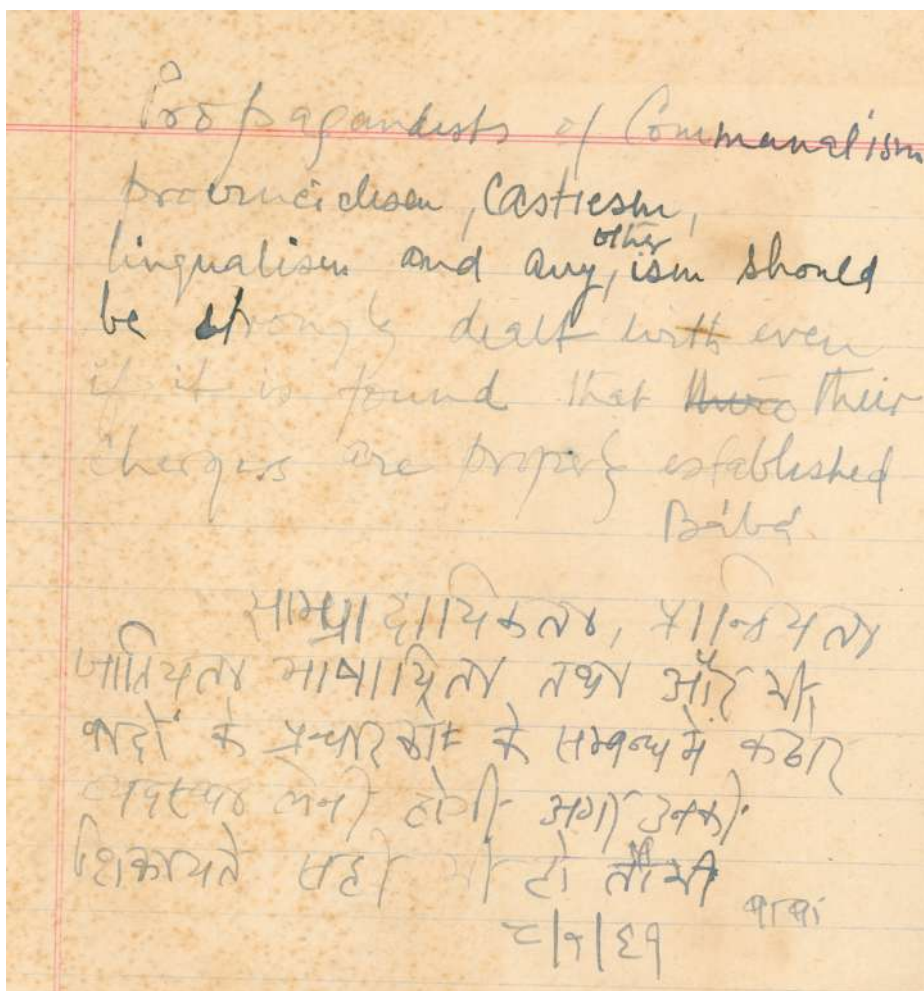 Propagandists of Communalism
provincialism, Castiesm,
lingualism and any other ism should
be strongly dealt with even
if it is found that their
charges are properly established
Bábá
साम्प्रादायिकता, प्रान्तियता
जातियता भाषायिता तथा और भी
वादों के प्रचारकों के सम्बन्ध में कठोर
व्यवस्था लेनी होगी अगर उनकी
शिकायतें सही भी हो तौभी
बाबा
८/१/६१